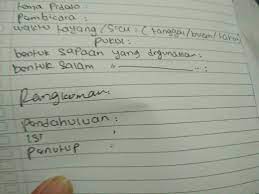 Tema Pidato :
Pembicara :
waktu tayang / : (tanggal/bulan/tahun
pukul :
bentuk sapaan yang digunakan :
bentuk salam " :
Rangkuman:
Pendahuluan :
ISI :
Penutup :